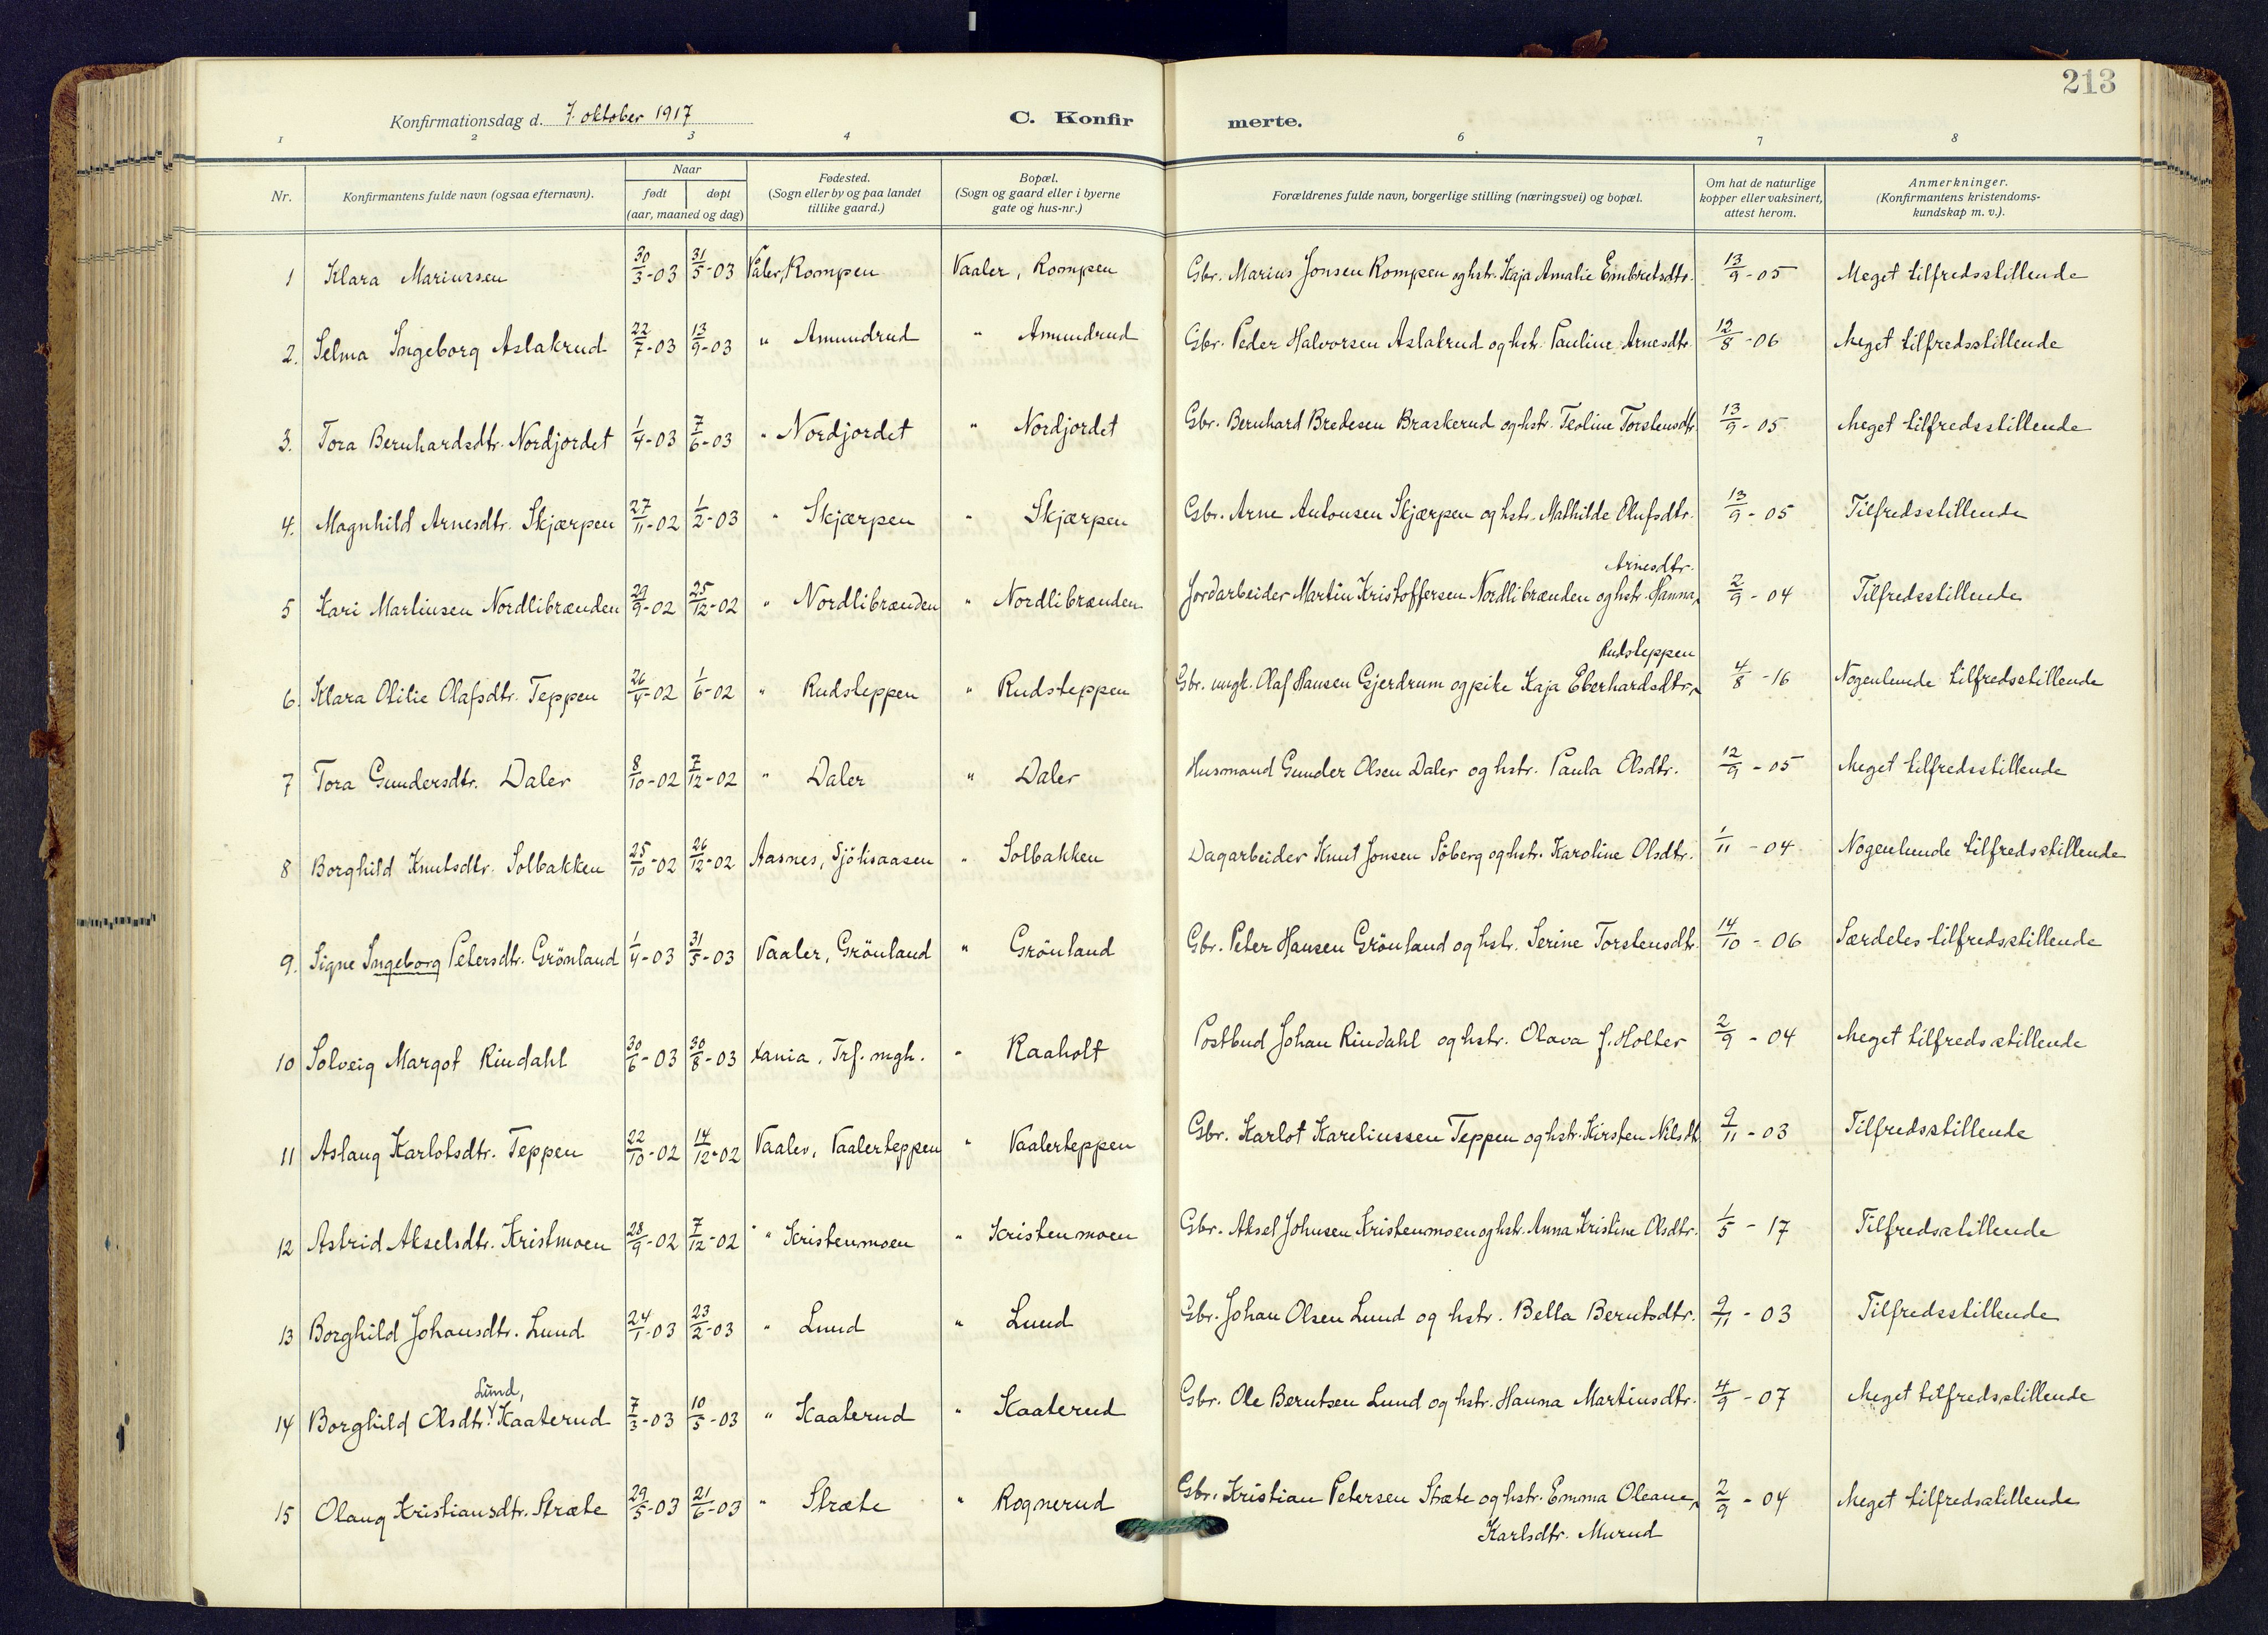 213
Konfirmationsdag d. 7. oktober 1917 C. Konfirmerte.
1 2 3 4 6 7 8
Nr. Konfirmantens fulde navn (ogsaa efternavn). Naar født døpt (aar, maaned og dag) Fødested. (Sogn eller by og paa landet tillike gaard.) Bopæl. (Sogn og gaard eller i byerne gate og hus-nr.) Forældrenes fulde navn, borgerlige stilling (næringsvei) og bopæl. Om hat de naturlige kopper eller vaksinert, attest herom. Anmerkninger. (Konfirmantens kristendoms-kundskap m. v.).
1 Klara Mariussen 30/3-03 31/5-03 Våler, Rompen Vaaler, Rompen Gbr. Marius Jonsen Rompen og hstr. Kaja Amalie Embretsdtr. 13/9-05 Meget tilfredsstillende
2. Selma Ingeborg Aslakrud 22/7-03 13/9-03 " Amundrud " Amundrud Gbr. Peder Halvorsen Aslakrud og hstr. Pauline Arnesdtr. 12/8-06 Meget tilfredsstillende
3. Tora Bernhardsdtr. Nordjordet 1/4-03 7/6-03 " Nordjordet " Nordjordet Gbr. Bernhard Bredesen Braskerud og hstr. Teoline Torstensdtr. 13/9-05 Meget tilfredsstillende
4. Magnhild Arnesdtr. Skjærpen 27/11-02 1/2-03 " Skjærpen " Skjærpen Gbr. Arne Antonsen Skjærpen og hstr. Mathilde Olufsdtr. 13/9-05 Tilfredsstillende
5 Kari Martinsen Nordlibrænden 29/9-02 25/12-02 " Nordlibrænden " Nordlibrænden Jordarbeider Martin Kristoffersen Nordlibrænden og hstr. Hanna Arnesdtr. 2/9-04 Tilfredsstillende
6. Klara Otilie Olafsdtr. Teppen 26/4-02 1/6-02 " Rudsteppen " Rudsteppen Gbr. ungk. Olaf Hansen Gjerdrum og pike Kaja Eberhardsdtr. Rudsteppen 4/8-16 Nogenlunde tilfredsstillende
7 Tora Gundersdtr. Daler 8/10-02 7/12-02 " Daler " Daler Husmand Gunder Olsen Daler og hstr. Paula Olsdtr. 12/9-05 Meget tilfredsstillende
8 Borghild Knutsdtr. Solbakken 25/10-02 26/12-02 Aasnes, Sjölisaasen " Solbakken Dagarbeider Knut Jonsen Söberg og hstr. Karoline Olsdtr. 1/11-04 Nogenlunde tilfredsstillende
9. Signe Ingeborg Petersdtr. Grönland 1/4-03 31/5-03 Vaaler, Grönland " Grönland Gbr. Peter Hansen Grönland og hstr. Serine Torstensdtr. 14/10-06 Særdeles tilfredsstillende
10 Solveig Margot Rindahl 30/6-03 30/8-03 Kania, Trf. mgh. " Raaholt Postbud Johan Rindahl og hstr. Olava f. Holter 2/9-04 Meget tilfredsstillende
11 Aslaug Karlotsdtr. Teppen 22/10-02 14/12-02 Vaaler, Vaalerteppen " Vaalerteppen Gbr. Karlot Kareliussen Teppen og hstr. Kirsten Nilsdt. 9/11-03 Tilfredsstillende
12 Astrid Akselsdtr. Kristmoen 28/9-02 7/12-02 " Kristenmoen " Kristenmoen Gbr. Aksel Johnsen Kristenmoen og hstr. Anna Kristine Olsdtr. 1/5-17 Tilfredsstillende
13 Borghild Johansdtr. Lund 24/1-03 23/2-03 " Lund " Lund Gbr. Johan Olsen Lund og hstr. Bella Berntsdtr. 9/11-03 Tilfredsstillende
14 Borghild Olsdtr. Lund, Kaaterud 7/3-03 10/5-03 " Kaaterud " Kaaterud Gbr. Ole Berntsen Lund og hstr. Hanna Martinsdtr. 4/9-07 Meget tilfredsstillende
15 Olaug Kristiansdtr. Stræte 29/5-03 21/6-03 " Stræte " Rognerud Gbr. Kristian Petersen Stræte og hstr. Emma Oleane Karlsdtr. Murud 2/9-04 Meget tilfredsstillende